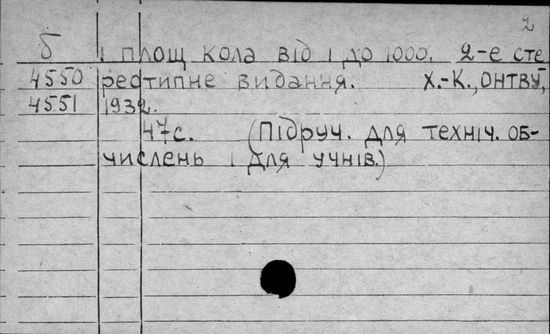 2
Б і площ кола від 1 до 1000. 2-е сте
4550 реотипне видання. Х.-К., ОНТВУ,
4551 1932.
47с. (Підруч. для техніч. об-
числень і для учнів.)